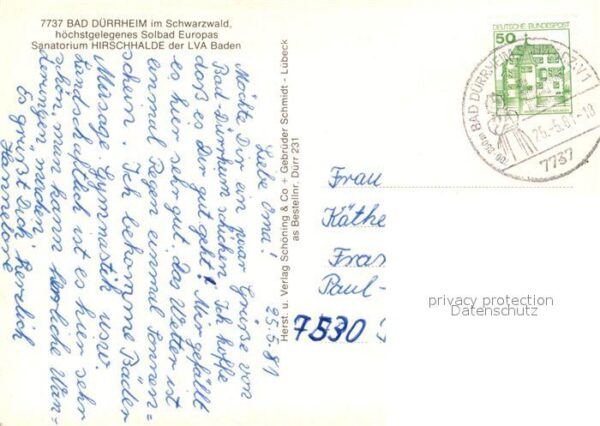 7737 BAD DÜRRHEIM im Schwarzwald,
höchstgelegenes Solbad Europas
Sanatorium HIRSCHHALDE der LVA Baden
25.5.81
Liebe Oma!
Möchte Dir ein paar Grüße von
Bad-Dürrheim schicken. Ich hoffe
daß es Dir gut geht! Mir gefällt
es hier sehr gut, das Wetter ist
einmal Regen einmal Sonnen=
schein. Ich bekomme Bäder
Massage Gymnastik usw.
Landschaftlich ist es hier sehr
schön, man kann herrliche Wan-
derungen machen.
Es grüßt Dich herzlich
Hannelore
Herst. u. Verlag Schöning & Co + Gebrüder Schmidt - Lübeck
as Bestellnr. Dürr 231
DEUTSCHE BUNDESPOST
50
BAD DÜRRHEIM
25.-5.81-18
7737
Frau
Käthe
Paul-
7530
privacy protection
Datenschutz